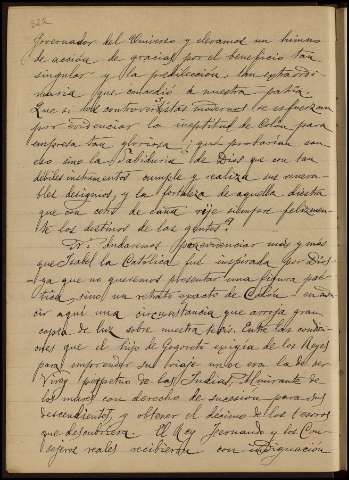 322
Governador del Universo y elevamos un himno
de acción de gracias por el beneficio tan
singular y la predilección tan extraordi
naria que concedió a nuestra patria.
Que si los controversistas modernos se esfuerzan
por evidenciar la ineptitud de Colón para
empresa tan gloriosa ¿que probarían sino la Sabiduría de Dios que con tan
débiles instrumentos cumple y realiza sus venera-
bles designios, y la fortaleza de aquella diestra
que con cetro de caña rije siempre felizmen-
te los destinos de las gentes?
Pr: Pondremos
más y más
que Isabel la Católica fué inspirada por Dios
ya que no queremos presentar una figura poé
tica, sino un retrato exacto de Colón
cir aquí una circunstancia que arroja gran
copia de luz sobre nuestra tesis. Entre las condi
ones que el hijo de Gogoreto exigía de los Reyes
para emprender su viaje unica era la de ser
Virey perpetuo de las Indias, Almirante de
los mares con derecho de sucesión para sus
descendientes, y obtener el décimo de los tesoros
que descubriera. El Rey Fernando y los Con-
sejeros reales recibieron con indignación